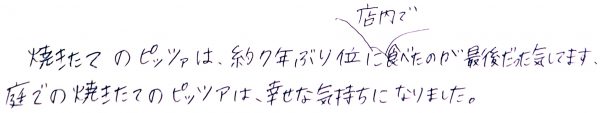 店内で
焼きたてのピッツァは、約7年ぶり位に食べたのが最後だった気してます、
庭での焼きたてのピッツアは、幸せな気持ちになりました。